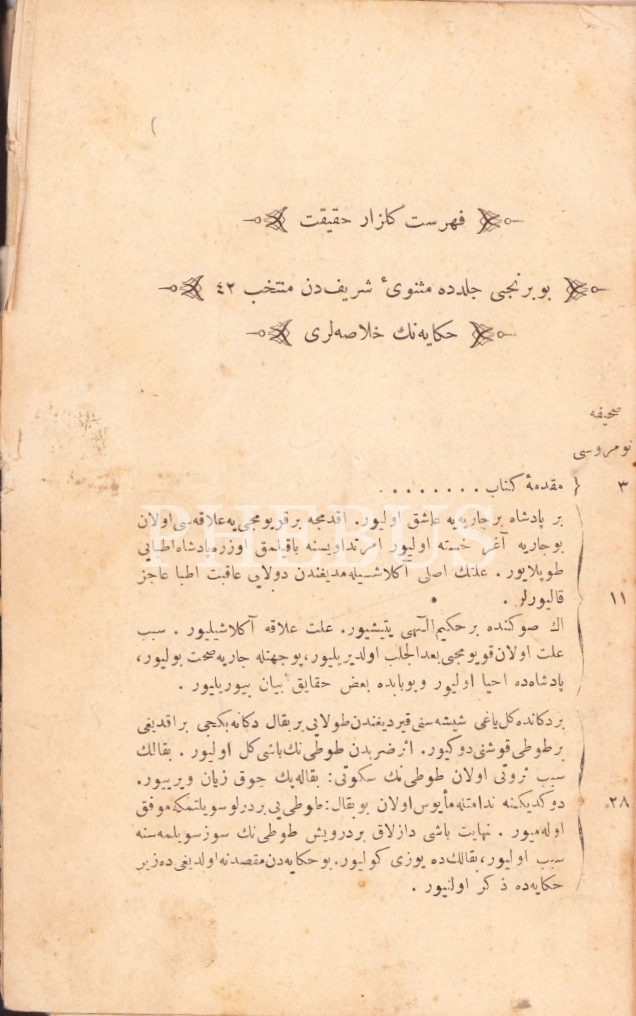 فهرست كلزار حقيقت
بو برنجی جلدده مثنوئ شريف‌دن منتخب ٤٢
حكايه‌نك خلاصه‌لری
صحيفه
نومروسی
٣ مقدمهٔ كتاب . . . . . . . .
بر پادشاه بر جاريه‌يه عاشق اوليور. اقدمجه بر قويومجی‌يه علاقه‌سی اولان
بو جاريه آغر خسته اوليور امر تداويسنه باقيلمق اوزره پادشاه اطبایی
طوپلايور . علتك اصلی آكلاشيله‌مديغندن دولايی عاقبت اطبا عاجز
١١ قاليورلر .
اك صوكنده بر حكيم الهی يتيشيور. علت علاقه آكلاشيليور . سبب
علت اولان قويومجی بعدالجلب اولديريليور، بوجهتله جاريه صحت بوليور،
پادشاه‌ده احيا اوليور و بوبابده بعض حقايق بيان بيوريليور .
بر دكانده كل ياغی شيشه‌سنی قيرديغندن طولايی بر بقال دكانه بكجی براقديغی
بر طوطی قوشنی دوكيور. اثر ضربدن طوطی‌نك باشی كل اوليور . بقالك
سبب ثروتی اولان طوطی‌نك سكوتی: بقاله پك چوق زيان ويرييور.
٢٨ دوكديكنه ندامتله مأيوس اولان بو بقال: طوطی‌يی بر درلو سويلتمكه موفق
اوله‌ميور . نهايت باشی دازلاق بر درويش طوطی‌نك سوز سويلمه‌سنه
سبب اوليور، بقالك‌ده يوزی كوليور. بو حكايه‌دن مقصد نه اولديغی‌ده زير
حكايه‌ده ذكر اولنيور .
PHEBUS